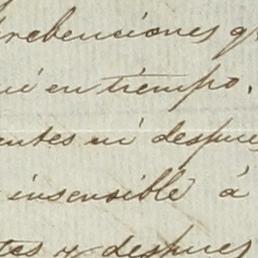 prebenciones q
ni en tiempo,
entes ni despues
insensible á
tes y despues